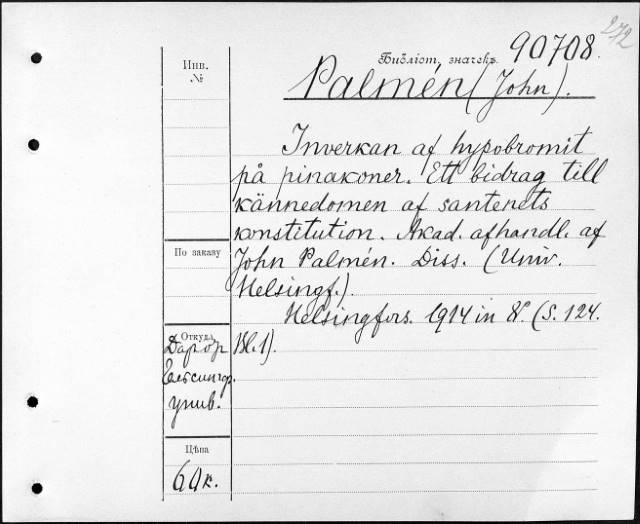 272
Библіот. значекъ 90708.
Инв.
№
Palmén (John).
Inverkan af hypobromit
på pinakoner. Ett bidrag till
kännedomen af santenets
konstitution. Akad. afhandl. af
По заказу
John Palmén. Diss. (Univ.
Helsingf.).
Helsingfors. 1914 in 8°. (S. 124.
Откуда
Bl. 1).
Дар от
Гельсингф.
унив.
Цѣна
60 к.